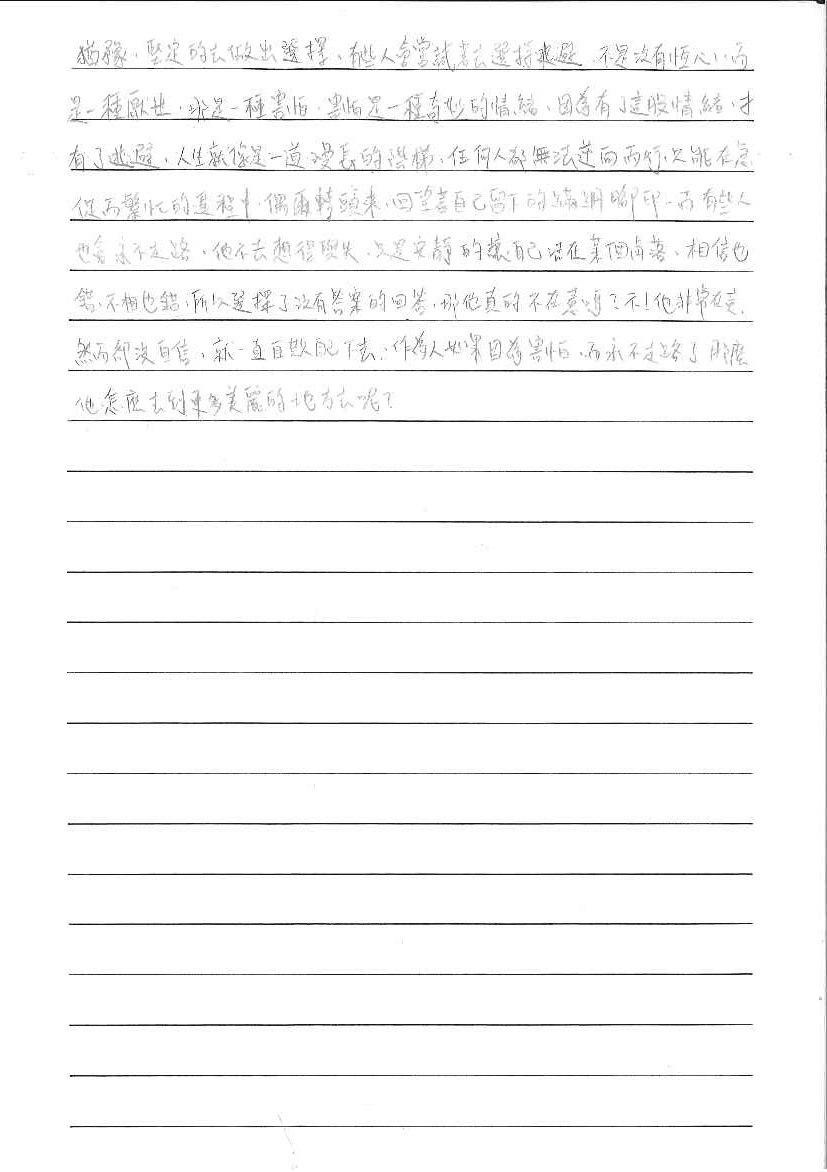 猶豫，堅定的去做出選擇、有些人會嘗試著去選擇逃避，不是沒有恆心，而
是一種厭世，那是一種害怕，害怕是一種奇妙的情緒、因為有了這股情緒，才
有了逃避，人生就像是一道漫長的階梯、任何人都無法逆向而行，只能在急
促而繁忙的 中，偶爾轉頭來，回望著自己留下的 腳印，而有些人
也會永不走路，他不去想得與失，只是安靜的讓自己 在某個角落、相信也
錯，不相也錯，所以選擇了沒有答案的回答，那他真的不在意嗎？不！他非常在意，
然而卻沒自信，就一直自 下去，作為人如果因為害怕，而永不走路了那麼
他怎麼去到更多美麗的地方去呢？